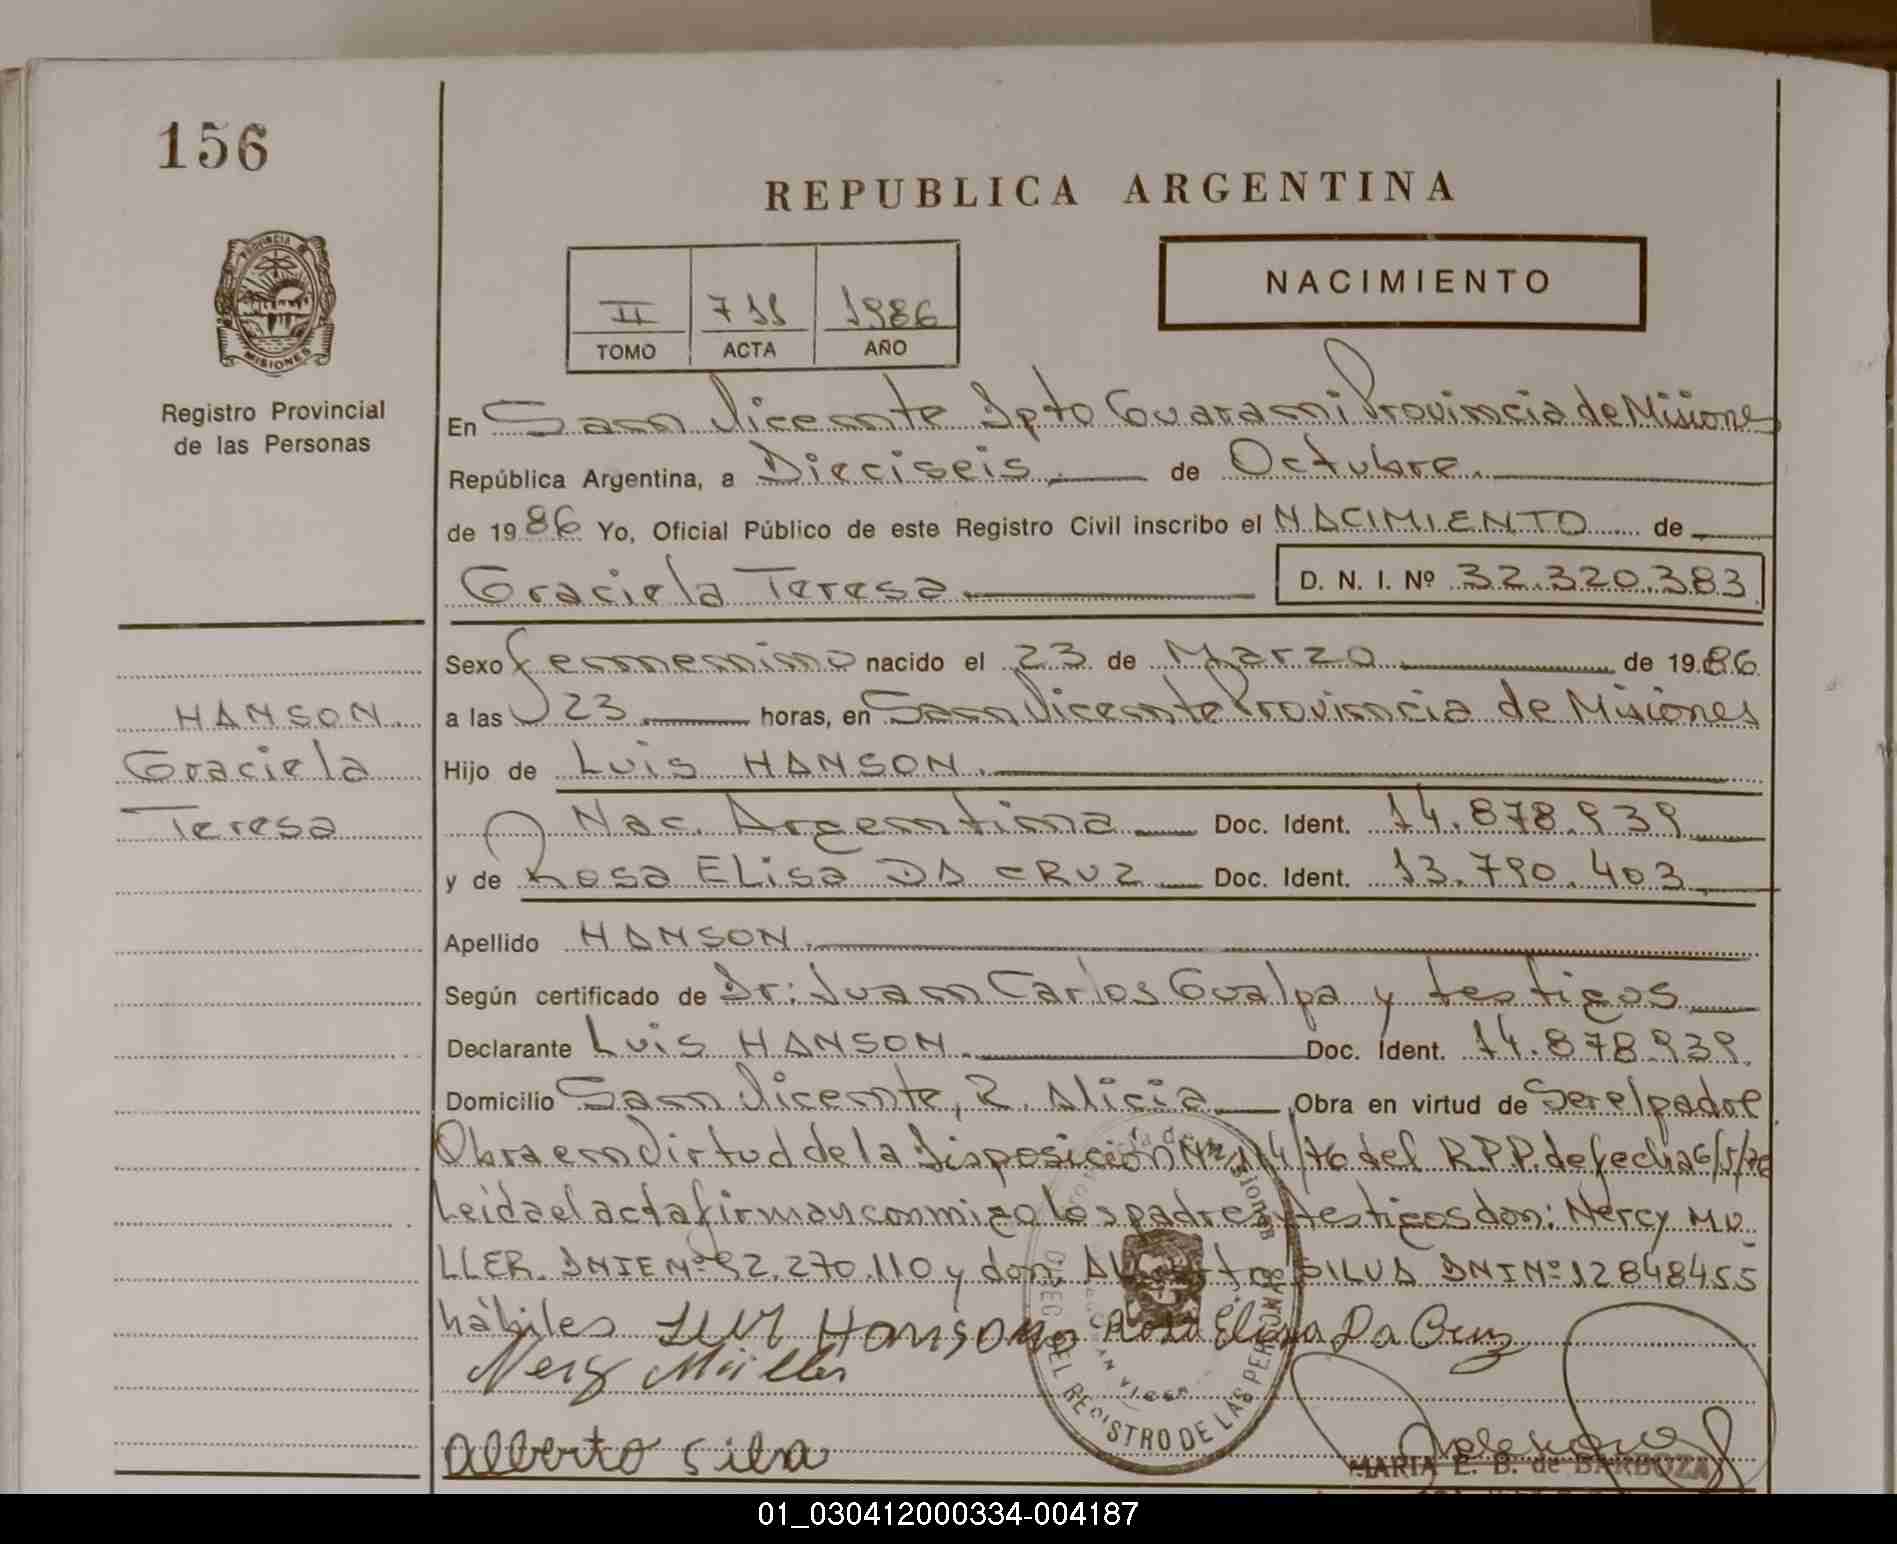 156
REPUBLICA ARGENTINA
PROVINCIA DE
MISIONES
II 711 1986
TOMO ACTA AÑO
NACIMIENTO
Registro Provincial
de las Personas
En San Vicente Dpto Guarani Provincia de Misiones
República Argentina, a Dieciseis. de Octubre.
de 1986 Yo, Oficial Público de este Registro Civil inscribo el NACIMIENTO de
Graciela Teresa. D. N. I. Nº 32.320.383
HANSON.
Graciela
Teresa
Sexo femenino nacido el 23 de Marzo de 1986
a las 23 horas, en San Vicente Provincia de Misiones
Hijo de Luis HANSON.
Nac. Argentina Doc. Ident. 14.878.939
y de Rosa ELisa DA CRUZ Doc. Ident. 13.790.403
Apellido HANSON.
Según certificado de Dr: Juan Carlos Gualpa y testigos
Declarante Luis HANSON. Doc. Ident. 14.878.939.
Domicilio San Vicente, R. Alicia Obra en virtud de Ser el padre
Obra en Virtud de la Disposición Nº /76 del R.P.P. de fecha 6/5/76
Leida el acta firman conmigo los padres y testigos don: Nercy MU
LLER. DNIE Nº 92.270.110 y don. SILVA DNI Nº 12848455
hábiles Luis Hanson Rosa Elisa Da Cruz
Nercy Müller
Alberto Silva
REGISTRO DE LAS PERSONAS
MARIA E. B. de BARBOZA
01_030412000334-004187